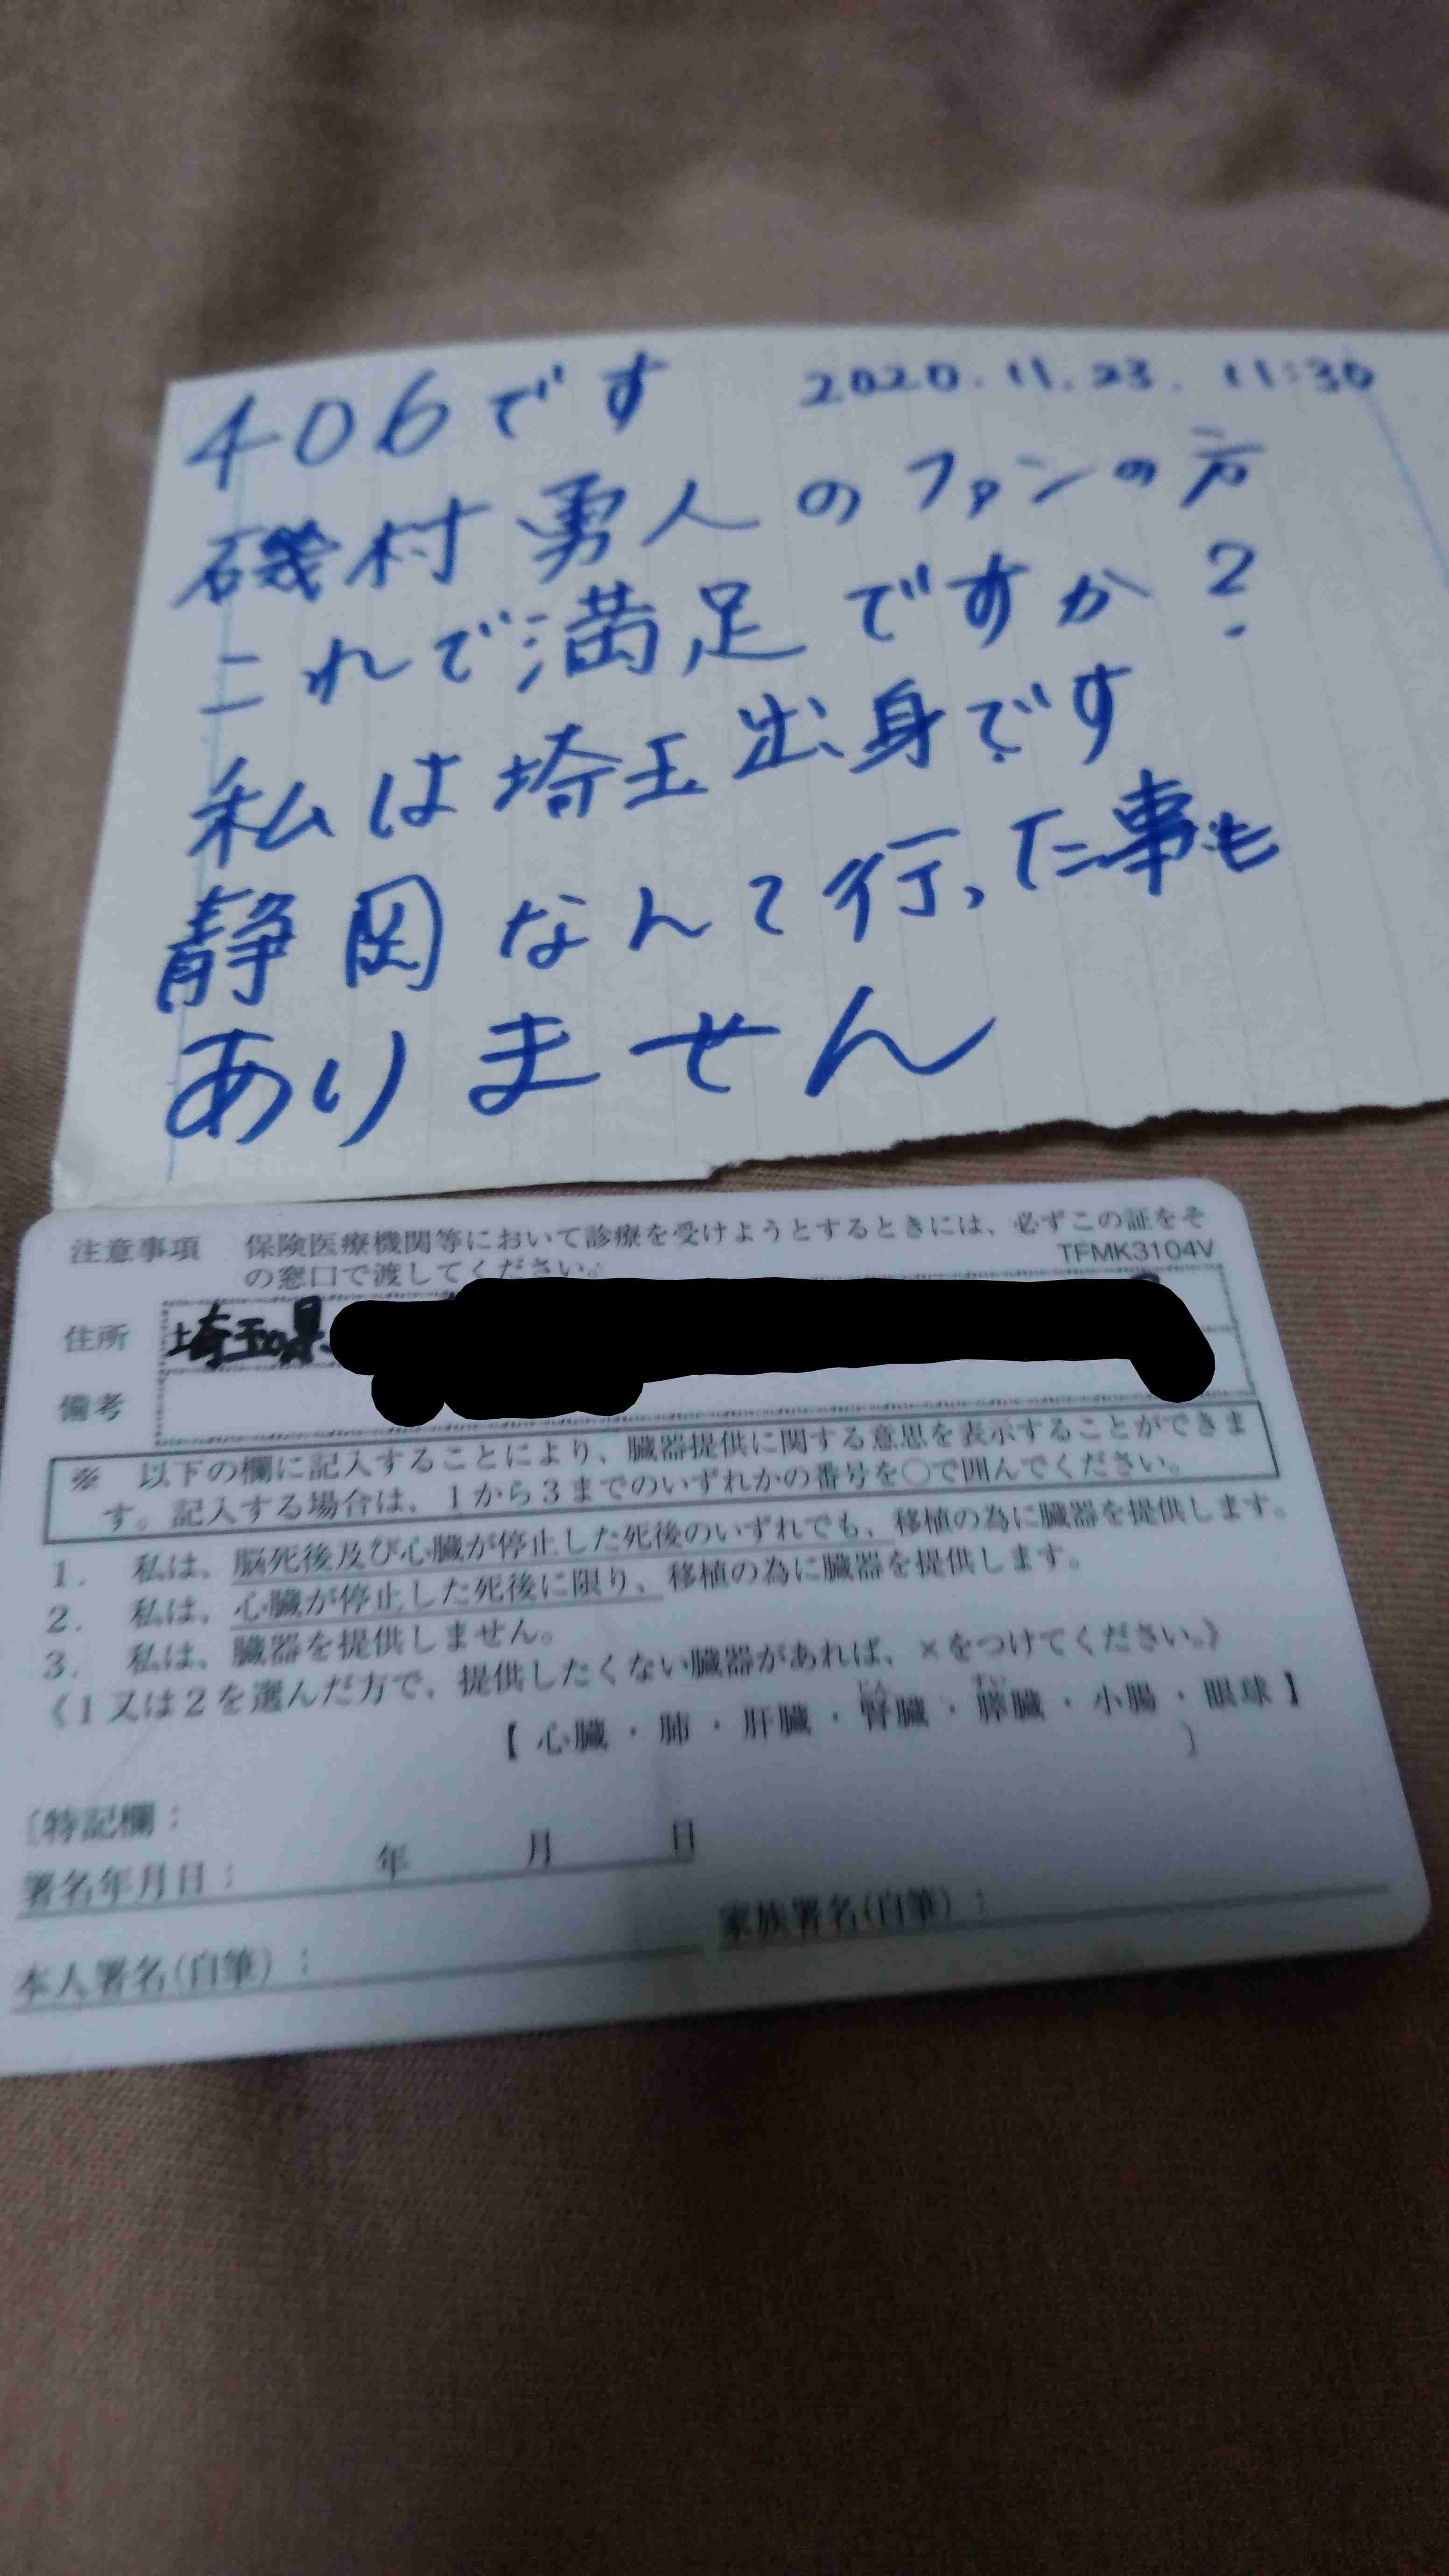 406です 2020.11.23. 11:30
磯村勇人のファンの方
これで満足ですか?
私は埼玉出身です
静岡なんて行った事も
ありません
注意事項 保険医療機関等において診療を受けようとするときには、必ずこの証をそ
の窓口で渡してください。 TFMK3104V
住所 埼玉県
備考
※ 以下の欄に記入することにより、臓器提供に関する意思を表示することができま
す。記入する場合は、1から3までのいずれかの番号を○で囲んでください。
1. 私は、脳死後及び心臓が停止した死後のいずれでも、移植の為に臓器を提供します。
2. 私は、心臓が停止した死後に限り、移植の為に臓器を提供します。
3. 私は、臓器を提供しません。
《1又は2を選んだ方で、提供したくない臓器があれば、×をつけてください。》
【 心臓 ・ 肺 ・ 肝臓 ・ 腎臓 ・ 膵臓 ・ 小腸 ・ 眼球 】
〔特記欄: 〕
署名年月日: 年 月 日
本人署名(自筆): 家族署名(自筆):